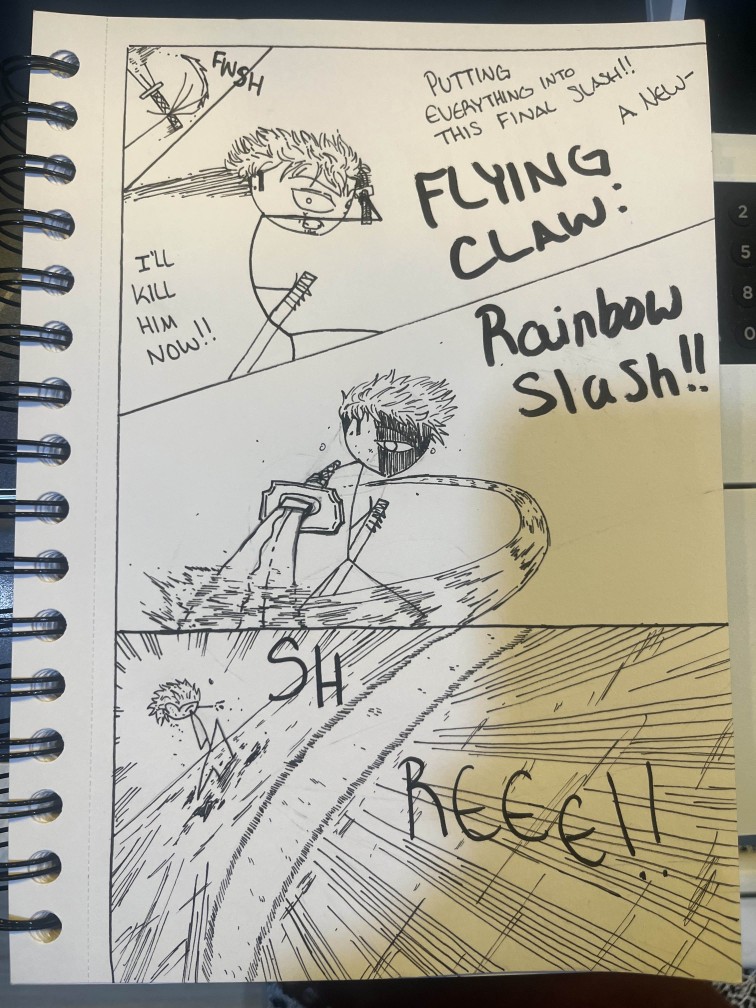 FWSH
PUTTING
EVERYTHING INTO
THIS FINAL SLASH!!
A NEW-
FLYING
CLAW:
I'LL
KILL
HIM
NOW!!
Rainbow
Slash!!
SH
REEE!!
2
5
8
0